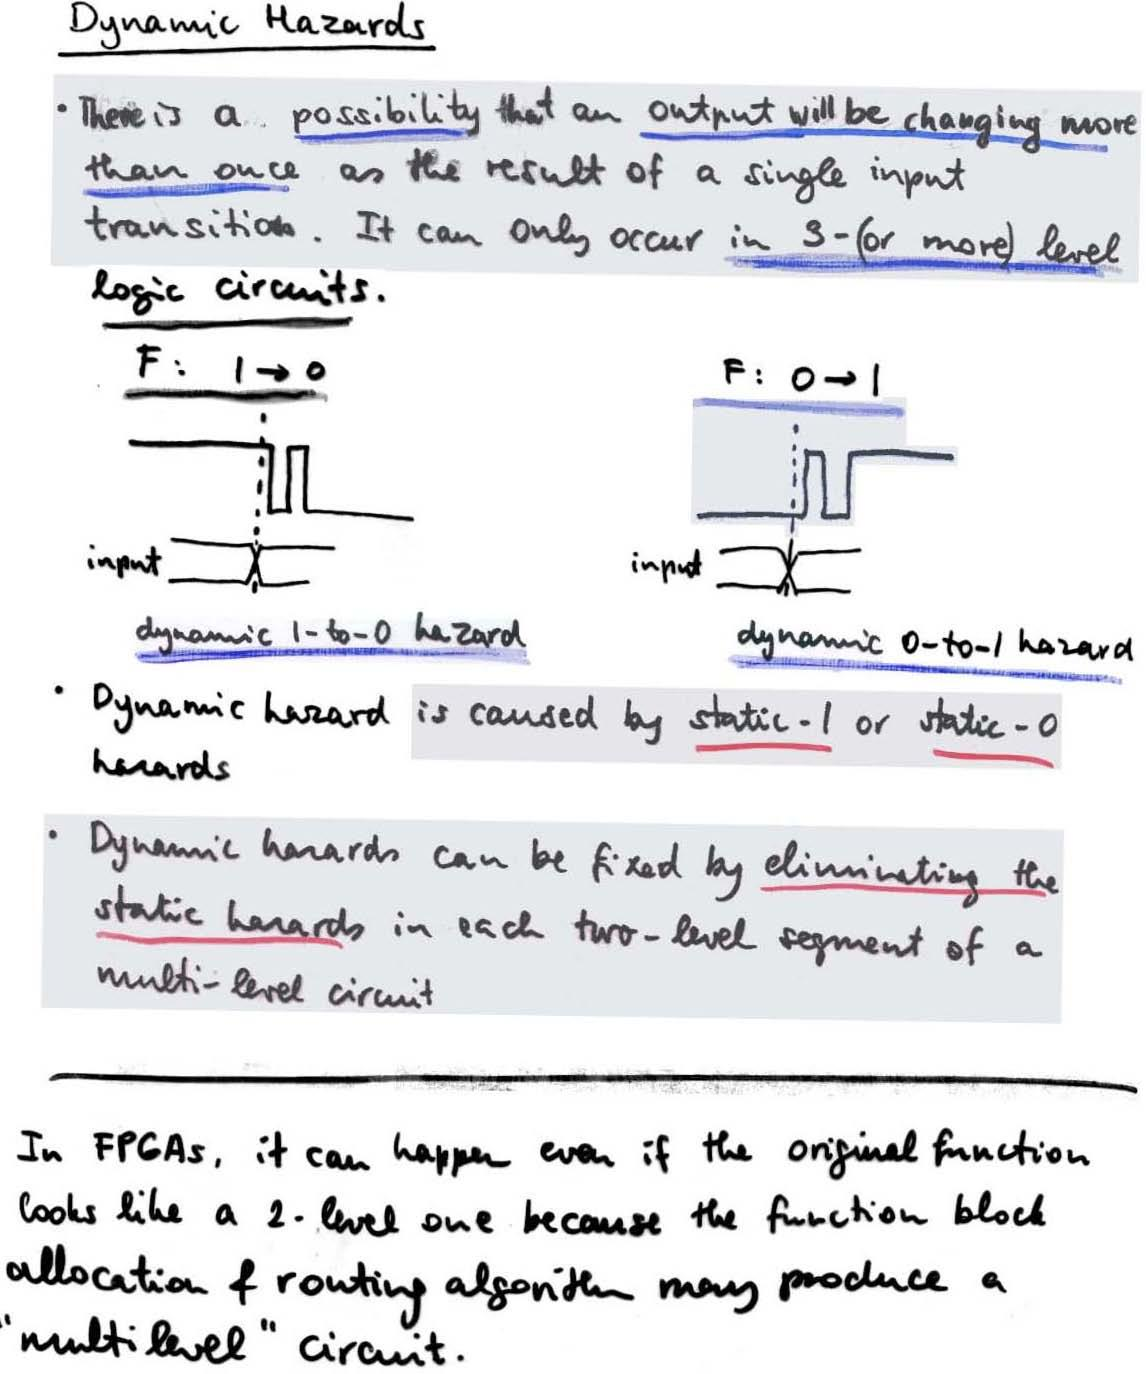 Dynamic Hazards
• There is a possibility that an output will be changing more
than once as the result of a single input
transition. It can only occur in 3-(or more) level
logic circuits.
F: 1 → 0
F: 0 → 1
input
input
dynamic 1-to-0 hazard
dynamic 0-to-1 hazard
• Dynamic hazard is caused by static-1 or static-0
hazards
• Dynamic hazards can be fixed by eliminating the
static hazards in each two-level segment of a
multi-level circuit
In FPGAs, it can happen even if the original function
looks like a 2-level one because the function block
allocation & routing algorithm may produce a
"multilevel" circuit.